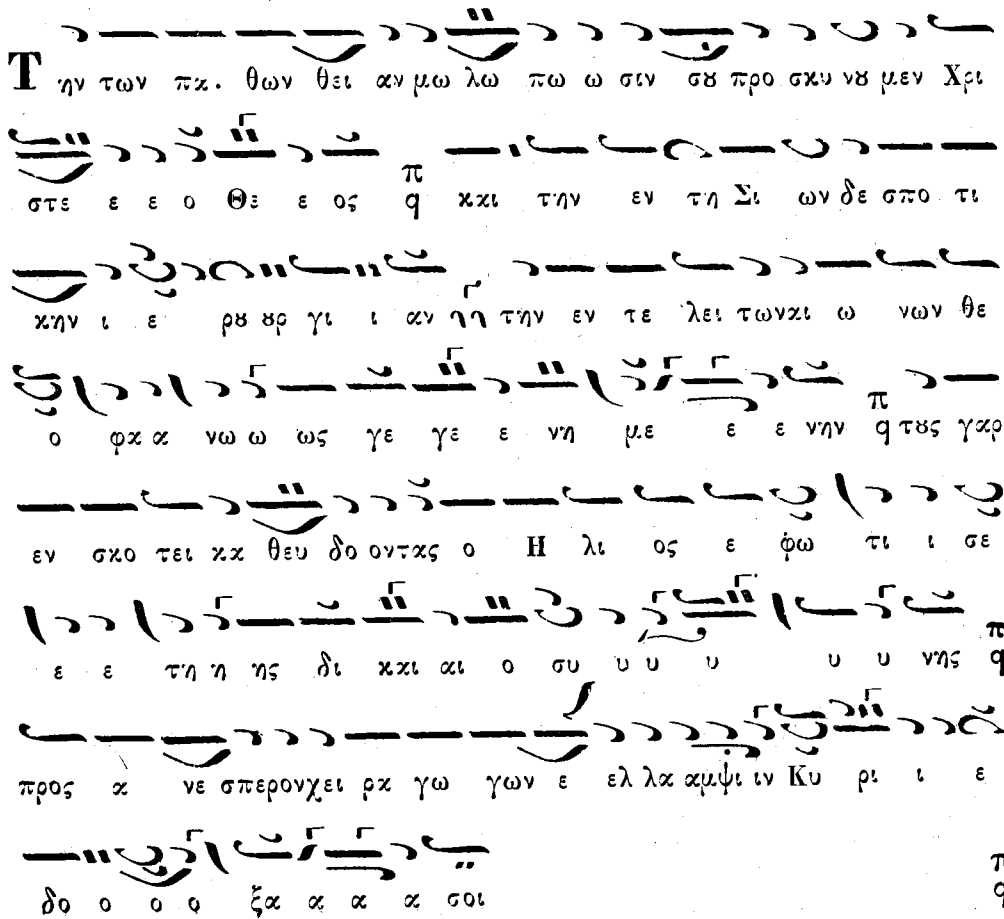 Την των πα. θων θει αν μω λω πω ω σιν σȣ προ σκυ νȣ μεν Χρι
στε ε ε ο Θε ε ος π q και την εν τη Σι ων δε σπο τι
κην ι ε ρȣ ȣρ γι ι αν την εν τε λει των αι ω νων θε
ο φα α νω ω ως γε γε ε νη με ε ε νην π q τȣς γαρ
εν σκο τει κα θευ δο οντας ο Η λι ος ε φω τι ι σε
ε ε τη η ης δι και αι ο συ υ υ υ υ υ νης π q
προς α νε σπερον χει ρα γω γων ε ελ λα αμψι ιν Κυ ρι ι ε
δο ο ο ο ξα α α α σοι π q